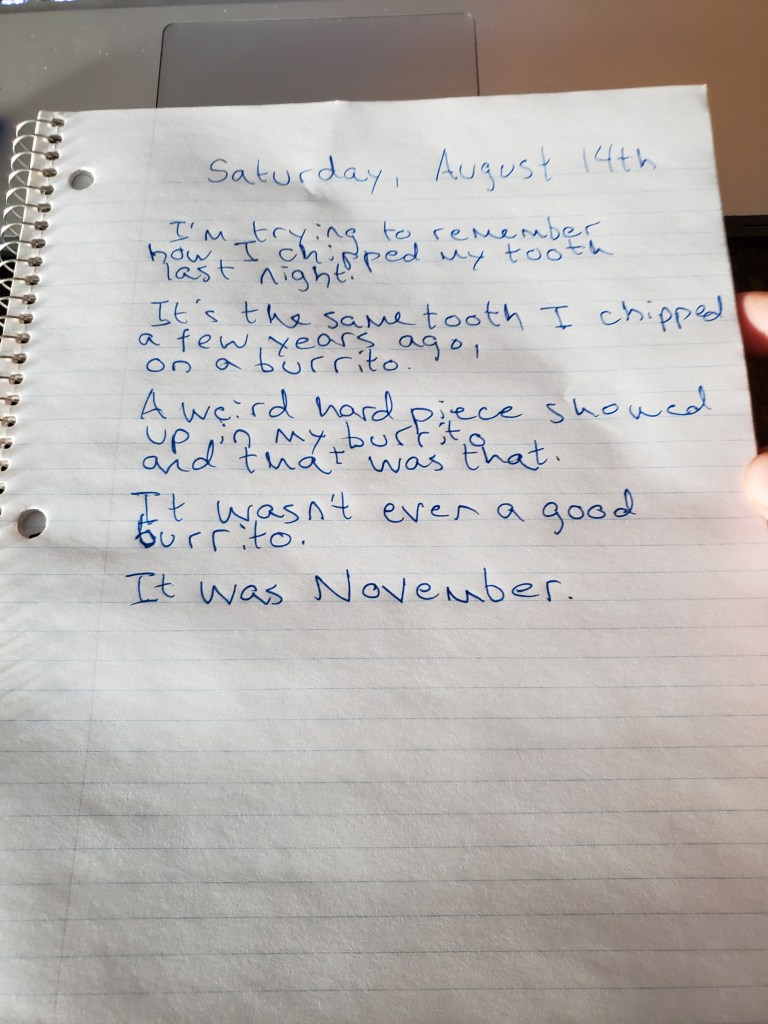 Saturday, August 14th
I'm trying to remember
how I chipped my tooth
last night.
It's the same tooth I chipped
a few years ago,
on a burrito.
A weird hard piece showed
up in my burrito
and that was that.
It wasn't even a good
burrito.
It was November.